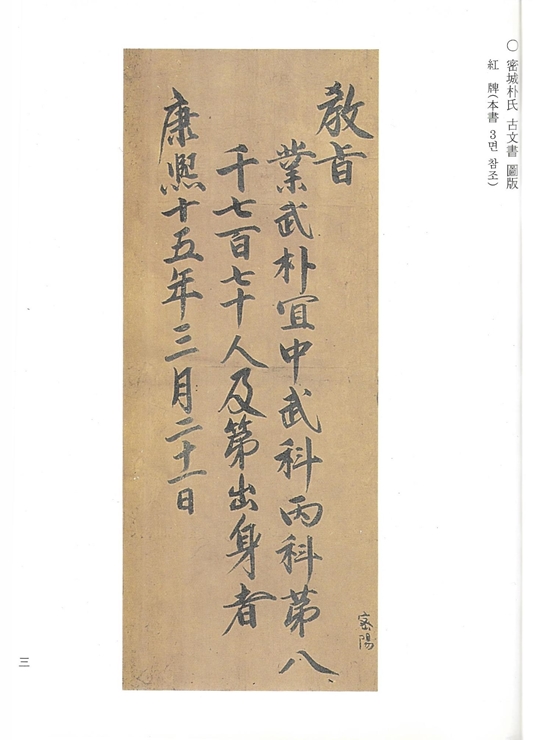 ○ 密城朴氏 古文書 圖版
紅 牌(本書 3면 참조)
教旨
業武朴宜中武科丙科第八
千七百七十人及第出身者
康熙十五年三月二十一日
密陽
三